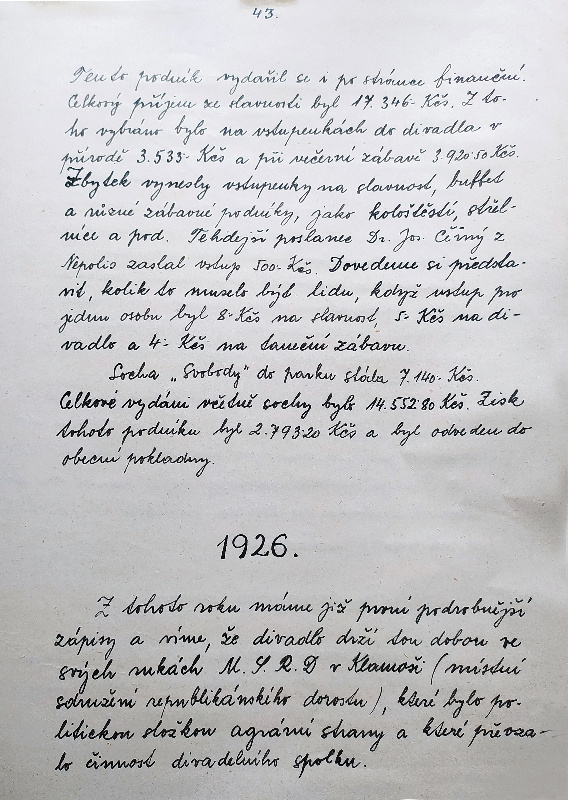 43.
Tento podnik vydařil se i po stránce finanční.
Celkový příjem ze slavnosti byl 17.346- Kčs. Z to-
ho vybráno bylo na vstupenkách do divadla v
přírodě 3.535- Kčs a při večerní zábavě 3.920·50 Kčs.
Zbytek vynesly vstupenky na slavnost, buffet
a různé zábavné podniky, jako kolotěstí, střel-
nice a pod. Tehdejší poslanec Dr. Jos. Černý z
Nepolis zaslal vstup 500- Kčs. Dovedeme si předsta-
vit, kolik to muselo být lidu, když vstup pro
jednu osobu byl 8- Kčs na slavnost, 5- Kčs na di-
vadlo a 4- Kčs na taneční zábavu.
Socha „Svobody" do parku stála 7.140- Kčs.
Celkové vydání včetně sochy bylo 14.552·80 Kčs. Zisk
tohoto podniku byl 2.793·20 Kčs a byl odveden do
obecní pokladny.
1926.
Z tohoto roku máme již první podrobnější
zápisy a víme, že divadlo drží tou dobou ve
svých rukách M. S. R. D v Klamoši (místní
sdružení republikánského dorostu), které bylo po-
litickou složkou agrární strany a které převza-
lo činnost divadelního spolku.